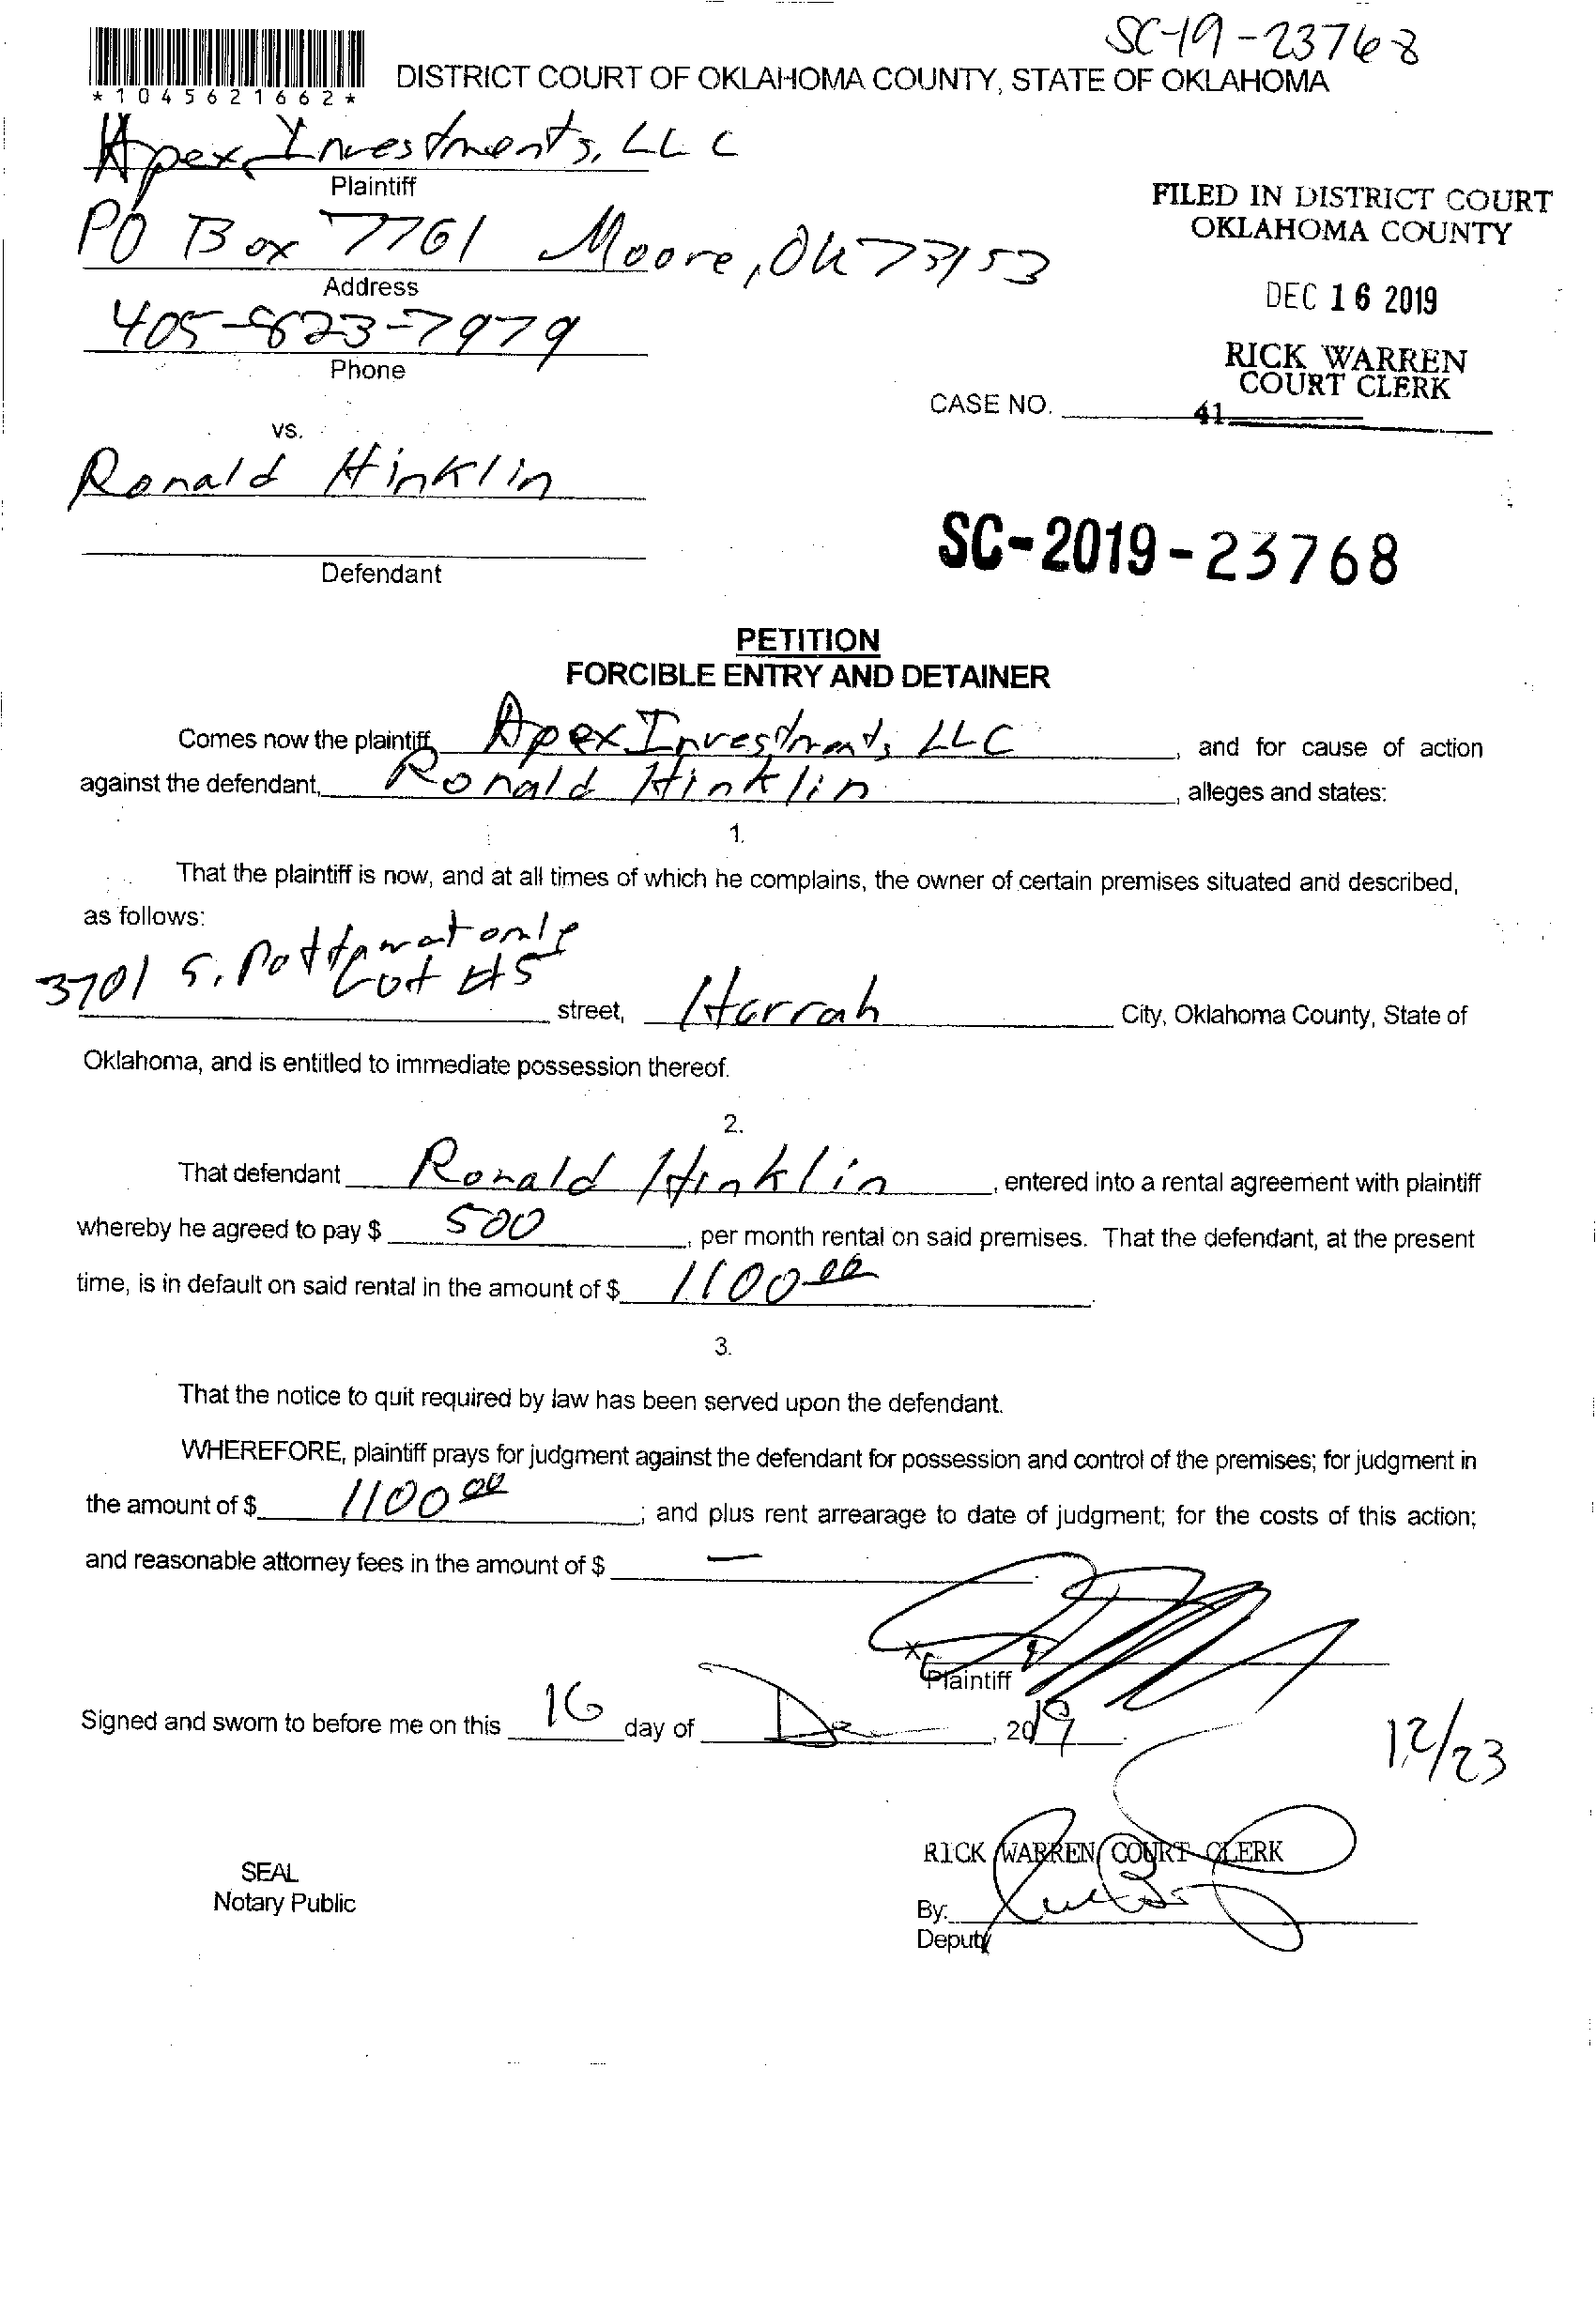 SC-19-23768
*1045621662*
DISTRICT COURT OF OKLAHOMA COUNTY, STATE OF OKLAHOMA
Apex Investments, LLC
Plaintiff
PO Box 7761 Moore, Ok 73153
Address
405-823-7979
Phone
FILED IN DISTRICT COURT
OKLAHOMA COUNTY
DEC 16 2019
RICK WARREN
COURT CLERK
CASE NO. 41
vs.
Ronald Hinklin
Defendant
SC-2019-23768
PETITION
FORCIBLE ENTRY AND DETAINER
Comes now the plaintiff, Apex Investments LLC, and for cause of action
against the defendant, Ronald Hinklin, alleges and states:
1.
That the plaintiff is now, and at all times of which he complains, the owner of certain premises situated and described,
as follows:
3701 S.
Lot #5 street, Harrah City, Oklahoma County, State of
Oklahoma, and is entitled to immediate possession thereof.
2.
That defendant Ronald Hinklin, entered into a rental agreement with plaintiff
whereby he agreed to pay $ 500, per month rental on said premises. That the defendant, at the present
time, is in default on said rental in the amount of $ 1100.00
3.
That the notice to quit required by law has been served upon the defendant.
WHEREFORE, plaintiff prays for judgment against the defendant for possession and control of the premises; for judgment in
the amount of $ 1100 00; and plus rent arrearage to date of judgment; for the costs of this action;
and reasonable attorney fees in the amount of $ —
x
Plaintiff
Signed and sworn to before me on this 16 day of Dec, 2019.
12/23
RICK WARREN COURT CLERK
SEAL
Notary Public
By:
Deputy